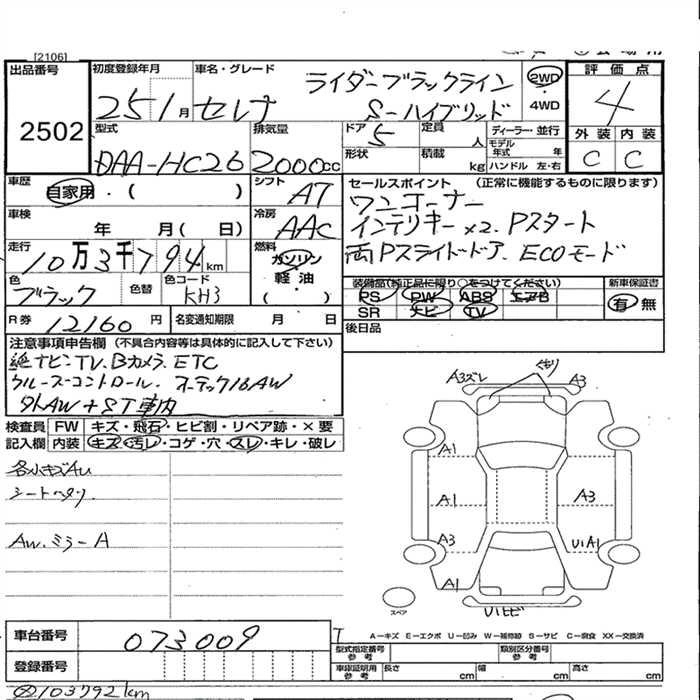 [2106]
出品番号 初度登録年月 車名・グレード ライダーブラックライン 2WD 評価点
2502 25 1月 セレナ S-ハイブリッド 4WD 4
型式 排気量 ドア 5 定員 人 ディーラー・並行 外装 内装
DAA-HC26 2000cc 形状 積載 kg モデル年式 年 ハンドル 左・右 C C
車歴 自家用・( ) シフト AT セールスポイント (正常に機能するものに限ります)
車検 年 月(日) 冷房 AAC ワンオーナー
インテリキー×2. Pスタート
走行 10万3千794km 燃料 ガソリン 軽油 ( ) 両Pスライドドア. ECOモード
色 ブラック 色替 色コード KH3 装備品(純正品に限り○をつけてください) 新車保証書
PS PW ABS エアB 有・無
SR ナビ TV
R券 12160円 名変通知期限 月 日 後日品
注意事項申告欄 (不具合内容等は具体的に記入して下さい)
純ナビ.TV.Bカメラ.ETC
クルーズコントロール. オーテック16AW
外AW+ST車内
検査員 FW キズ・飛石・ヒビ割・リペア跡・×要
記入欄 内装 キズ・汚レ・コゲ・穴・スレ・キレ・破レ
各小キズAu
シートヘタリ
AW.ミラーA
A3ズレ くもり A3
A1
A1 A3
A3 U1A1
A1
スペア U1ヒビ
A－キズ E－エクボ U－凹み W－補修跡 S－サビ C－腐食 XX－交換済
車台番号 073009 型式指定番号 参考 類別区分番号 参考
登録番号 車庫証明用 参考 長さ cm 幅 cm 高さ cm
103792km